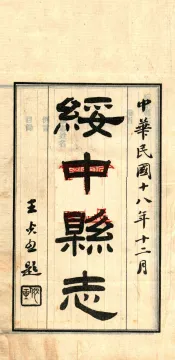 中華民國十八年十二月
綏中縣志
王文璞題